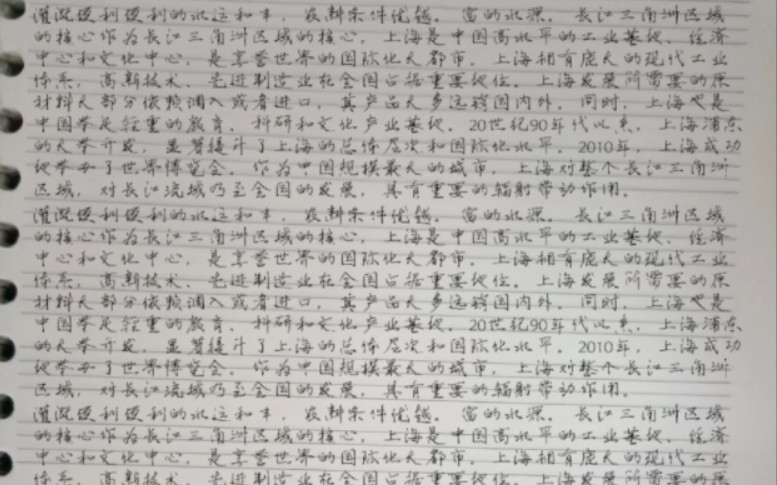 灌溉便利便利的水运和丰，农耕条件优越。富的水源。长江三角洲区域
的核心作为长江三角洲区域的核心，上海是中国高水平的工业基地、经济
中心和文化中心，是享誉世界的国际化大都市。上海拥有庞大的现代工业
体系，高新技术、先进制造业在全国占据重要地位。上海发展所需要的原
材料大部分依赖调入或者进口，其产品大多远销国内外。同时，上海也是
中国举足轻重的教育、科研和文化产业基地。20世纪90年代以来，上海浦东
的大举开发，显著提升了上海的总体层次和国际化水平。2010年，上海成功
地举办了世界博览会。作为中国规模最大的城市，上海对整个长江三角洲
区域，对长江流域乃至全国的发展，具有重要的辐射带动作用。
灌溉便利便利的水运和丰，农耕条件优越。富的水源。长江三角洲区域
的核心作为长江三角洲区域的核心，上海是中国高水平的工业基地、经济
中心和文化中心，是享誉世界的国际化大都市。上海拥有庞大的现代工业
体系，高新技术、先进制造业在全国占据重要地位。上海发展所需要的原
材料大部分依赖调入或者进口，其产品大多远销国内外。同时，上海也是
中国举足轻重的教育、科研和文化产业基地。20世纪90年代以来，上海浦东
的大举开发，显著提升了上海的总体层次和国际化水平。2010年，上海成功
地举办了世界博览会。作为中国规模最大的城市，上海对整个长江三角洲
区域，对长江流域乃至全国的发展，具有重要的辐射带动作用。
灌溉便利便利的水运和丰，农耕条件优越。富的水源。长江三角洲区域
的核心作为长江三角洲区域的核心，上海是中国高水平的工业基地、经济
中心和文化中心，是享誉世界的国际化大都市。上海拥有庞大的现代工业
体系，高新技术、先进制造业在全国占据重要地位。上海发展所需要的原